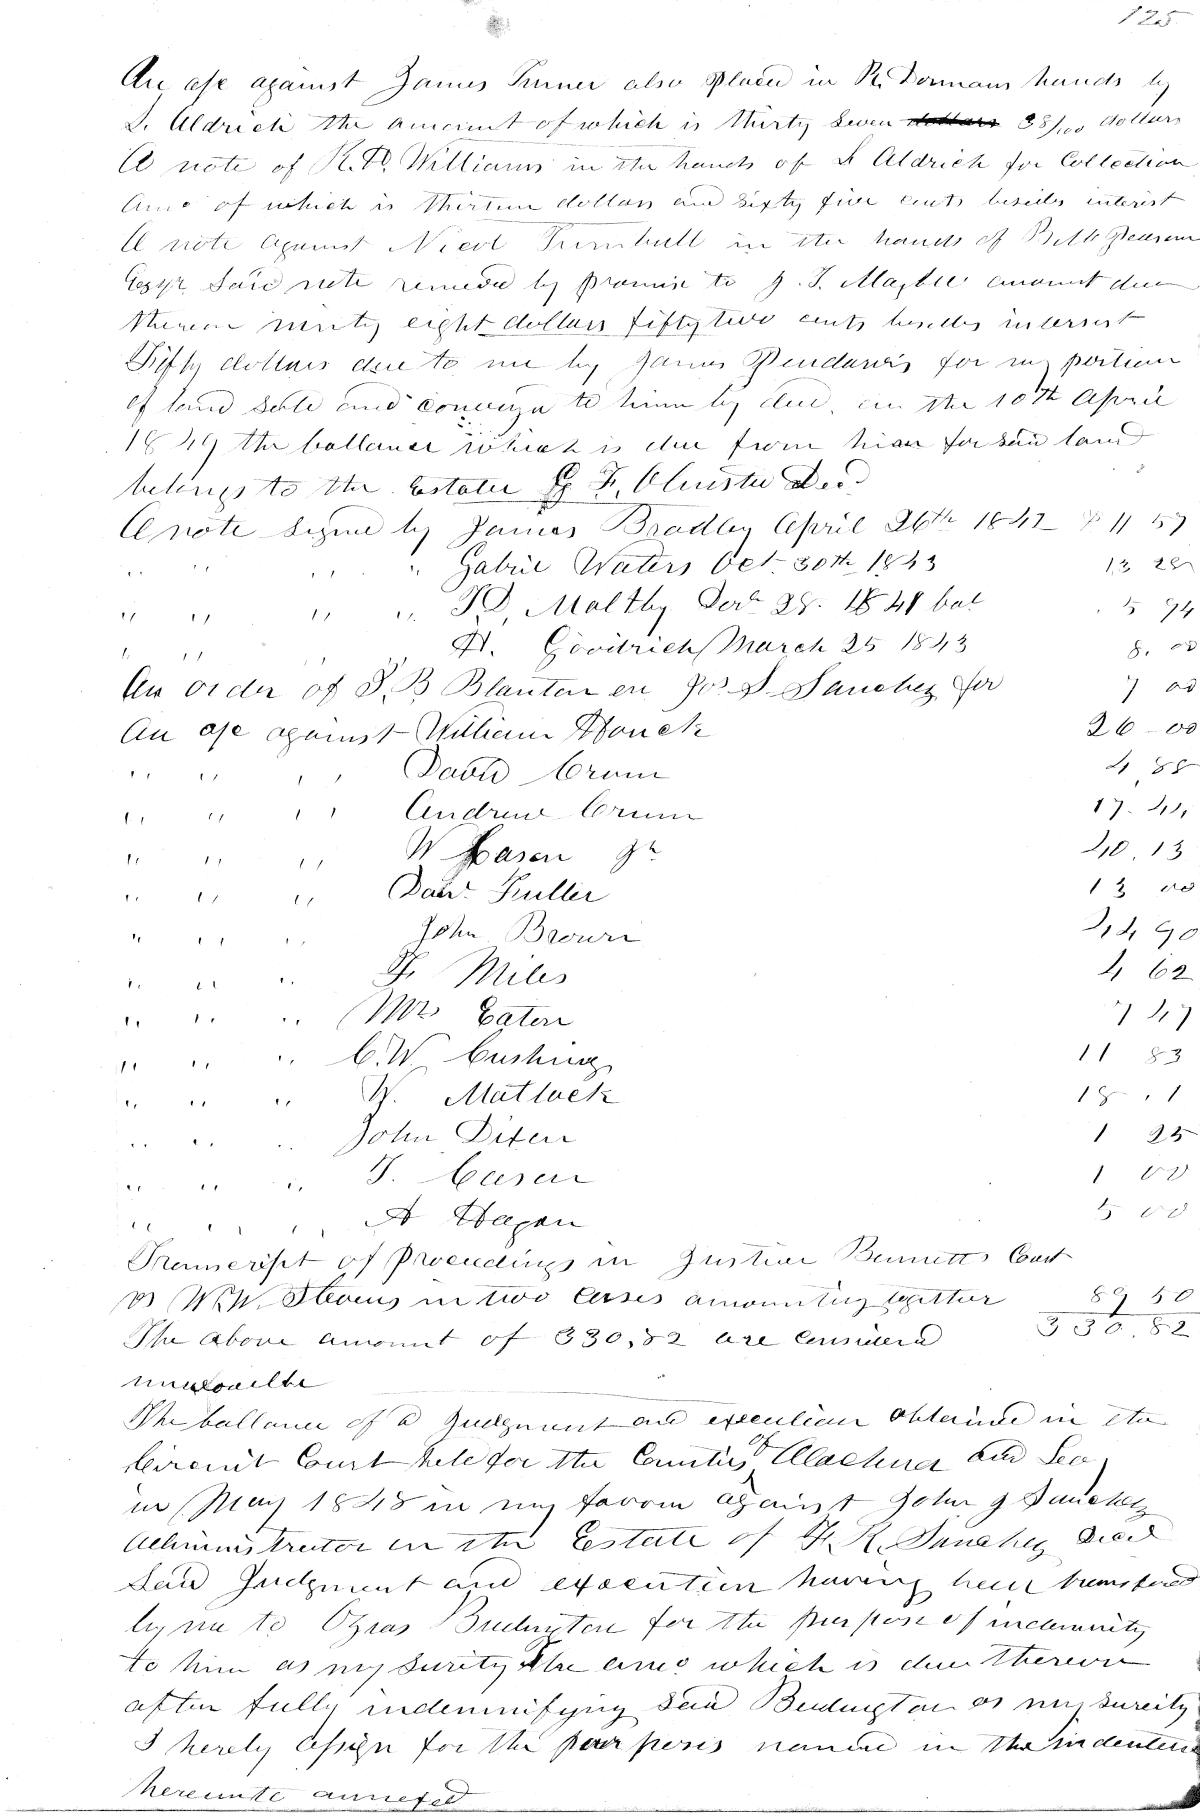 125
An a/c against James Turner also placed in R. Dormans hands by
L. Aldrich the amount of which is thirty seven dollars 38/100 dollars
A note of R.D. Williams in the hands of L Aldrich for Collection
Amo of which is thirteen dollars and sixty five cents besides interest
A note against Nicol Turnbull in the hands of Pearson
Esqr. Said note renewed by promise to J. T. Maybee amount due
thereon ninety eight dollars fifty two cents besides interest
Fifty dollars due to me by James Pendarvis for my portion
of land sold and conveyd to him by deed, on the 10th April
1849 the ballance which is due from him for said land
belongs to the Estate G F. Olmsted Decd.
A note signed by James Bradley April 26th 1842 $ 11 57
" " " " Gabril Waters Oct. 30th 1843 13 28
" " " " Maltby Decr 28. 1841 bal 5 94
" " " " H. Goodrich March 25 1843 8.00
An order of S.B Blanton on Jos. S. Sanchez for 7 00
An a/c against William Houck 26-00
" " " David Crum 4.88
" " " Andrew Crum 17.44
" " " W Cason Jr 40.13
" " " Danl. Fuller 13 00
" " " John Brown 44 90
" " " F. Miles 4 62
" " " Mrs Eaton 7 47
" " " C.W. Cushing 11 83
" " " W. Matlock 18.1
" " " John Dixen 1 25
" " " T. Cason 1 00
" " " A Hagan 5 00
Transcript of proceedings in Justice Bennetts Court
vs W.W. Stevens in two cases amounting together 89 50
The above amount of 330.82 are considerd 330.82
The ballance of a Judgment and execution obtained in the
Circuit Court held for the Counties of Alachua and Levy
in May 1848 in my favour against John J Sanchez
administrator on the Estate of F. R. Sanchez Decd
Said Judgment and execution having been transfered
by me to Ozias Budington for the purpose of indemnity
to him as my surity The amo which is due thereon
after fully indemnifying said Budington as my surety
I hereby assign for the purposes named in the indenture
hereunto annexed